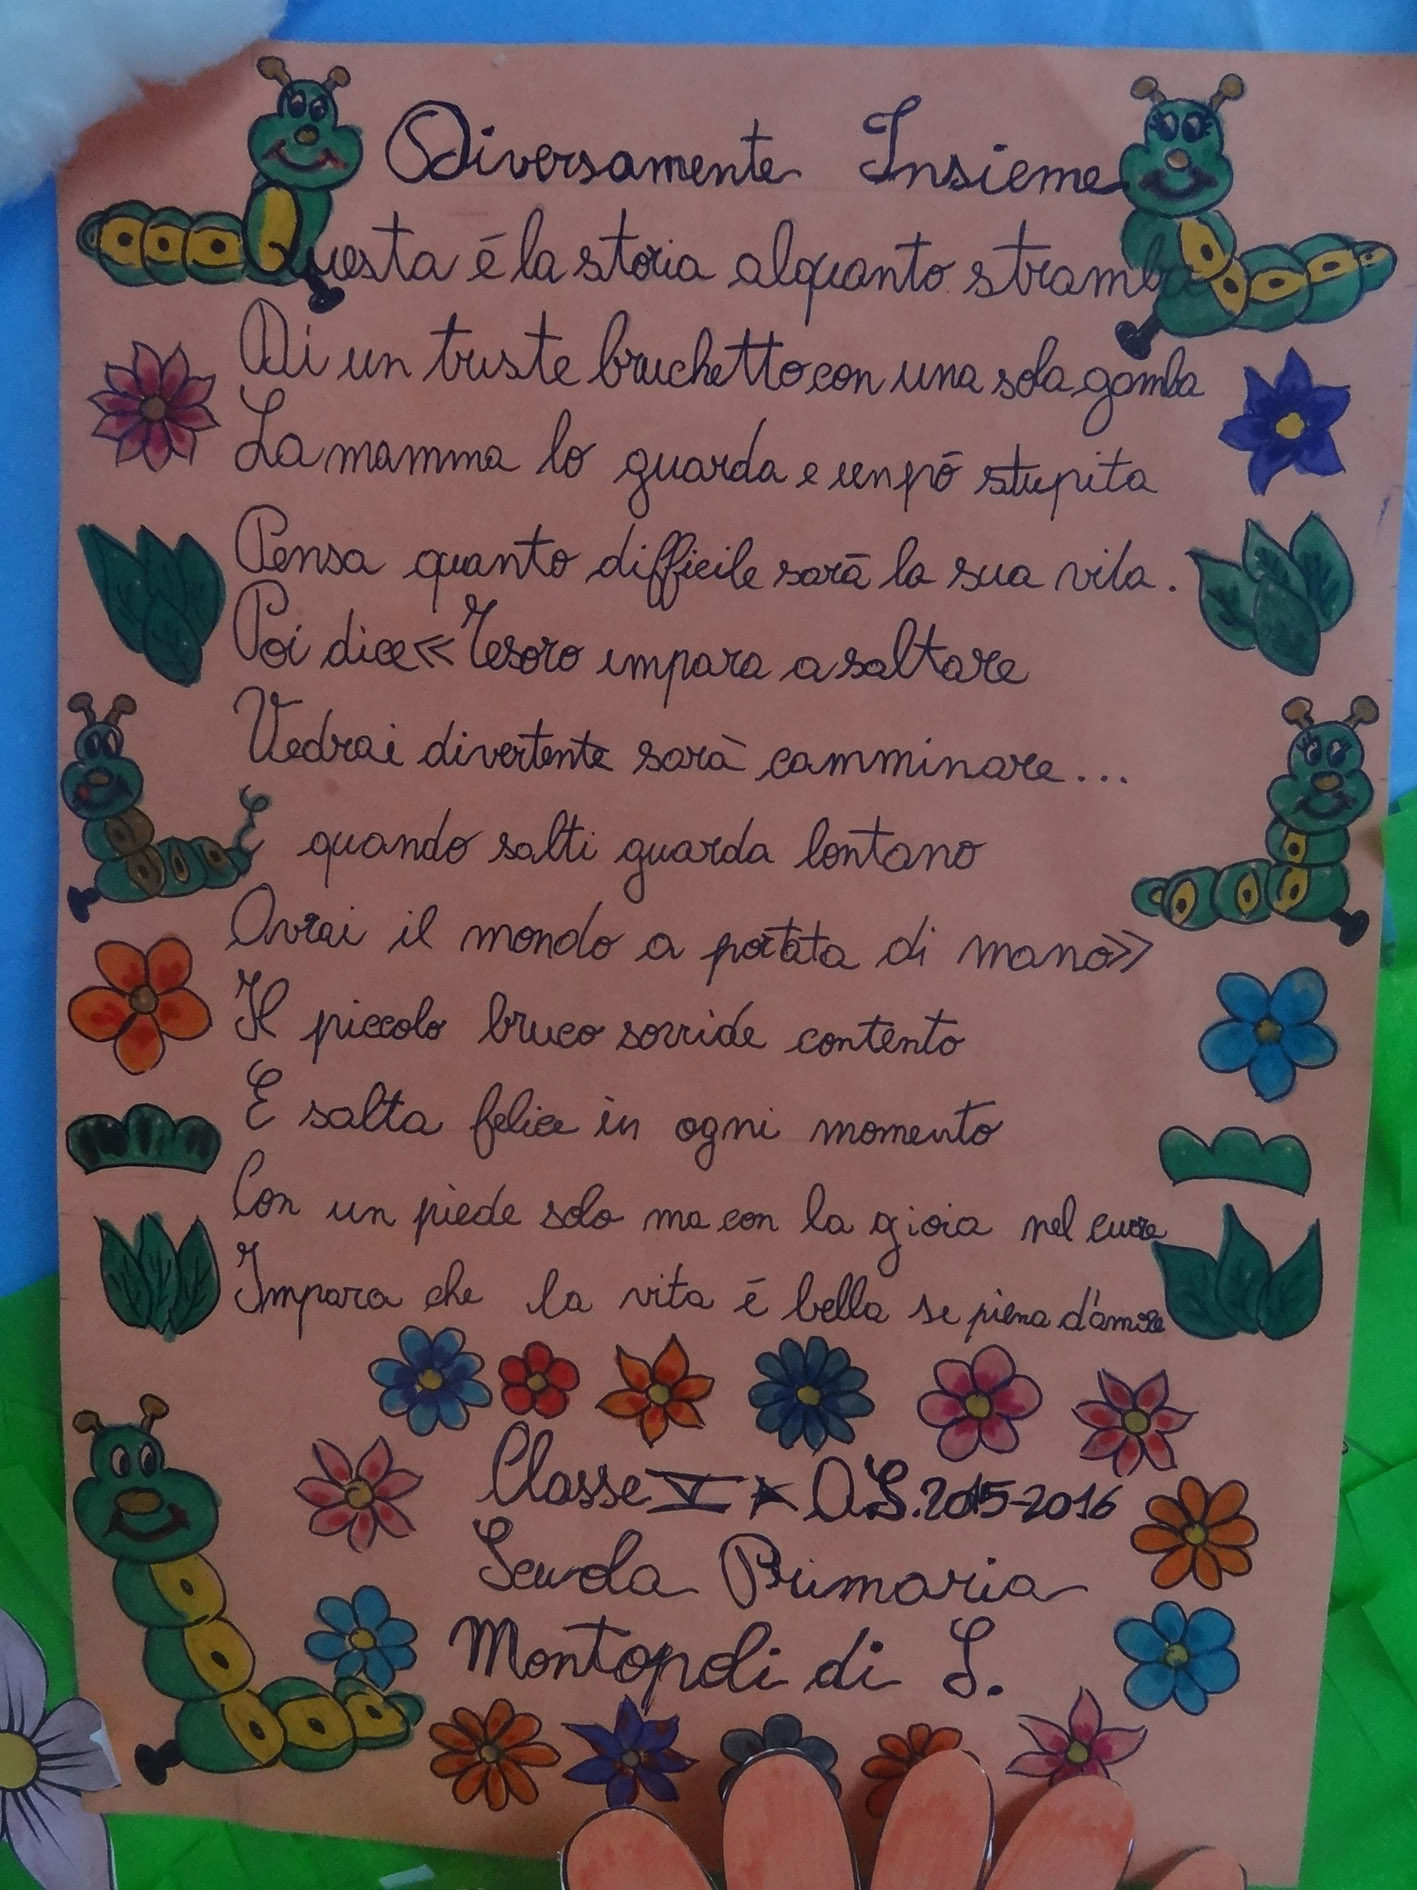 Diversamente Insieme
Questa é la storia alquanto stramba
Di un triste bruchetto con una sola gamba
La mamma lo guarda e un pó stupita
Pensa quanto difficile sarā la sua vita.
Poi dice «Tesoro impara a saltare
Vedrai divertente sarà camminare...
E quando salti guarda lontano
Avrai il mondo a portata di mano»
Il piccolo bruco sorride contento
E salta felice in ogni momento
Con un piede solo ma con la gioia nel cuore
Impara che la vita é bella se piena d'amore
Classe V A A.S. 2015-2016
Scuola Primaria
Montopoli di S.